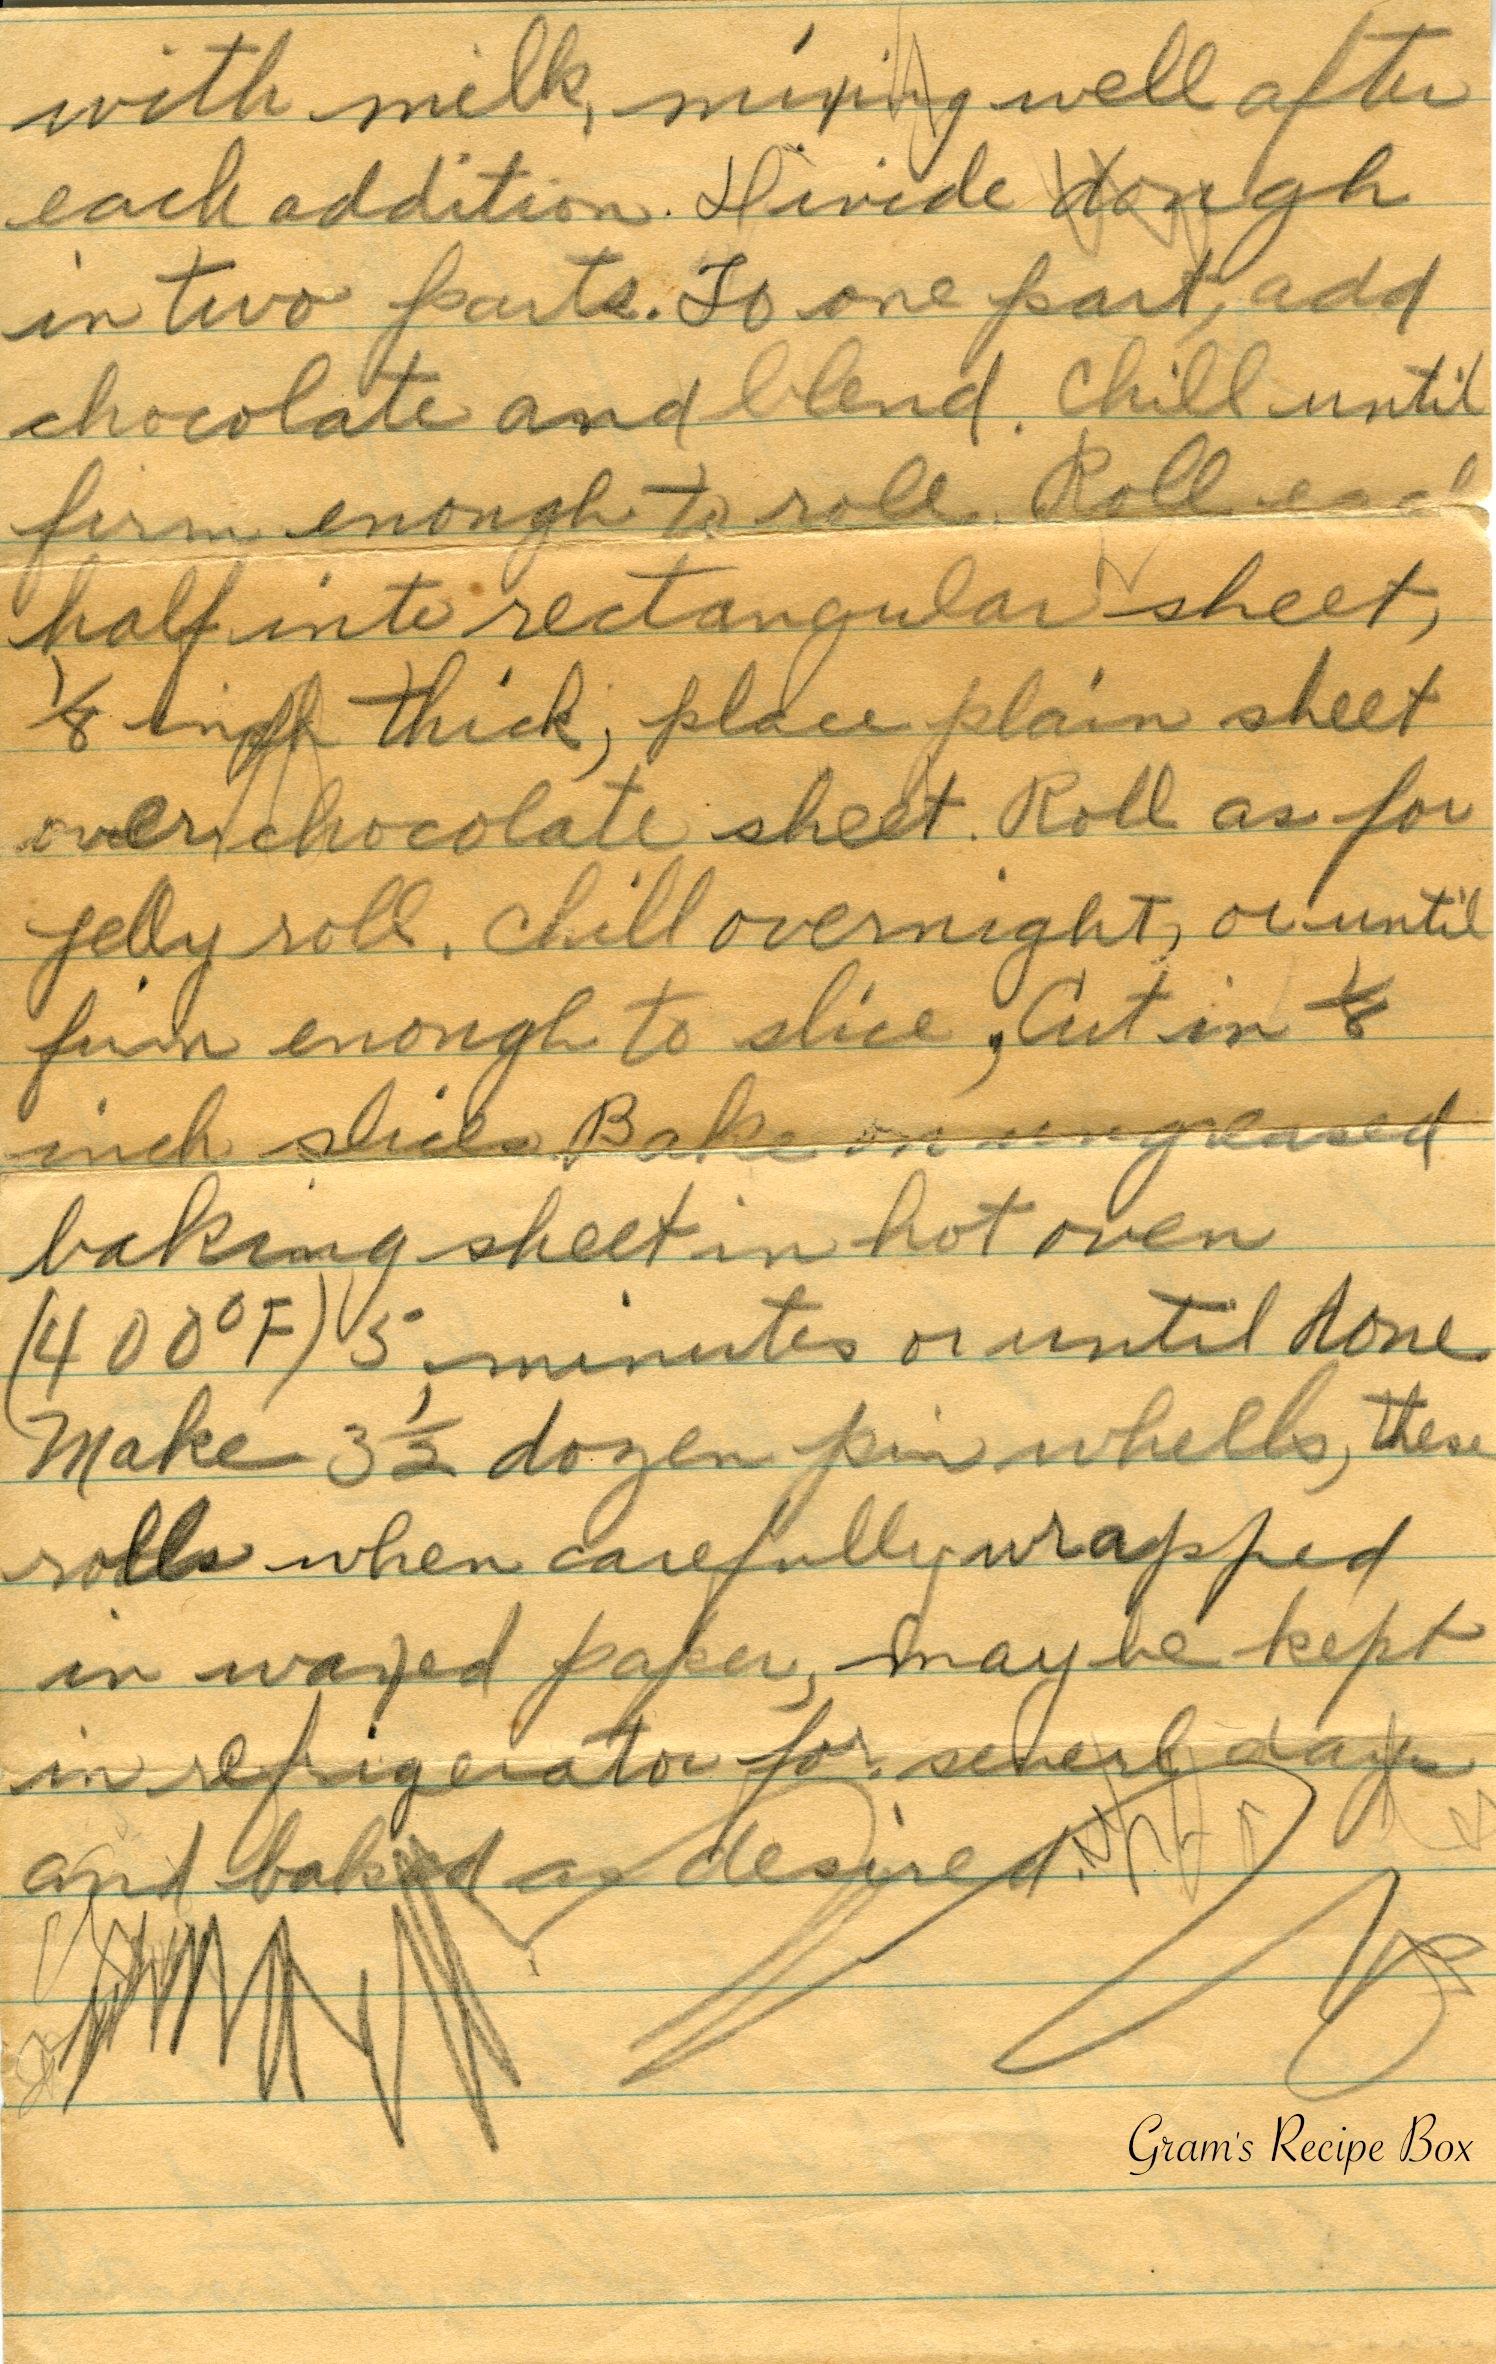 with milk, mixing well after
each addition. Divide dough
in two parts. To one part, add
chocolate and blend. Chill until
firm enough to roll. Roll each
half into rectangular sheet,
1/8 inch thick, place plain sheet
over chocolate sheet. Roll as for
jelly roll. Chill overnight, or until
firm enough to slice, Cut in 1/8
inch slices. Bake on ungreased
baking sheet in hot oven
(400°F) 5 minutes or until done
Make 3 1/2 dozen pin whells, these
rolls when carefully wrapped
in waxed paper, may be kept
in refrigerator for severl days
and baked as desired.
Gram's Recipe Box